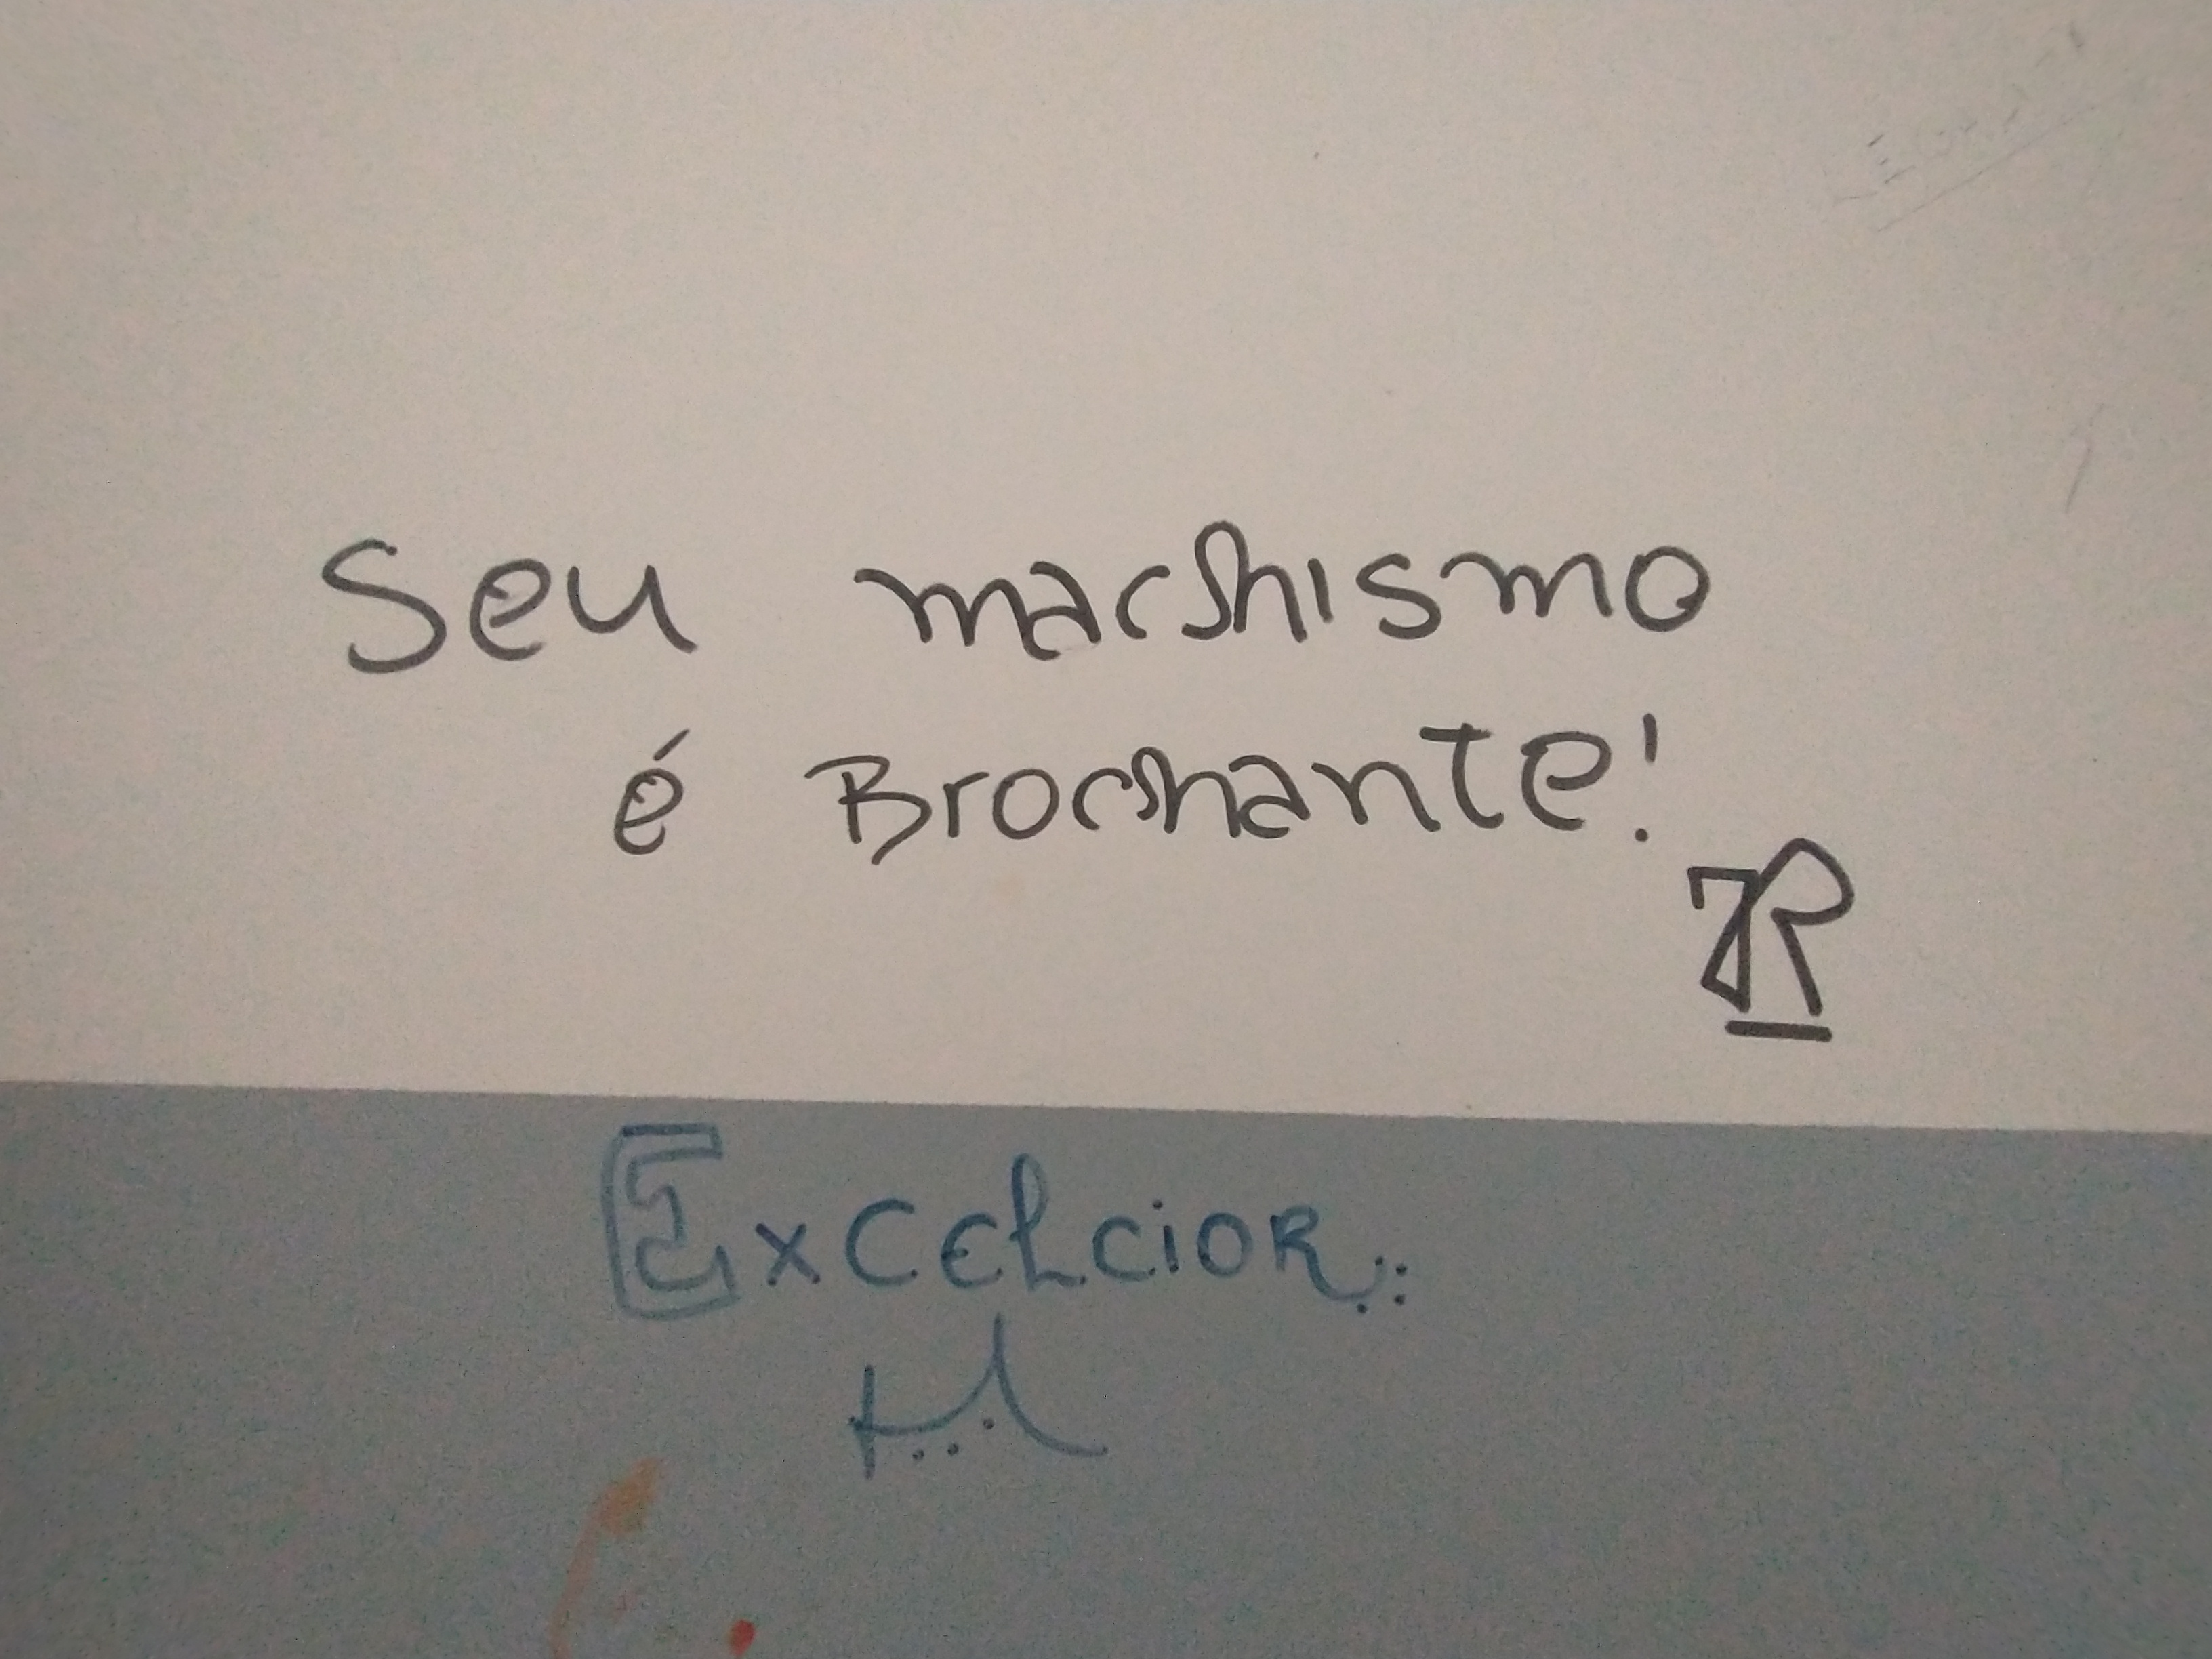 Seu machismo
é Brochante!
JR
ExcElcioR